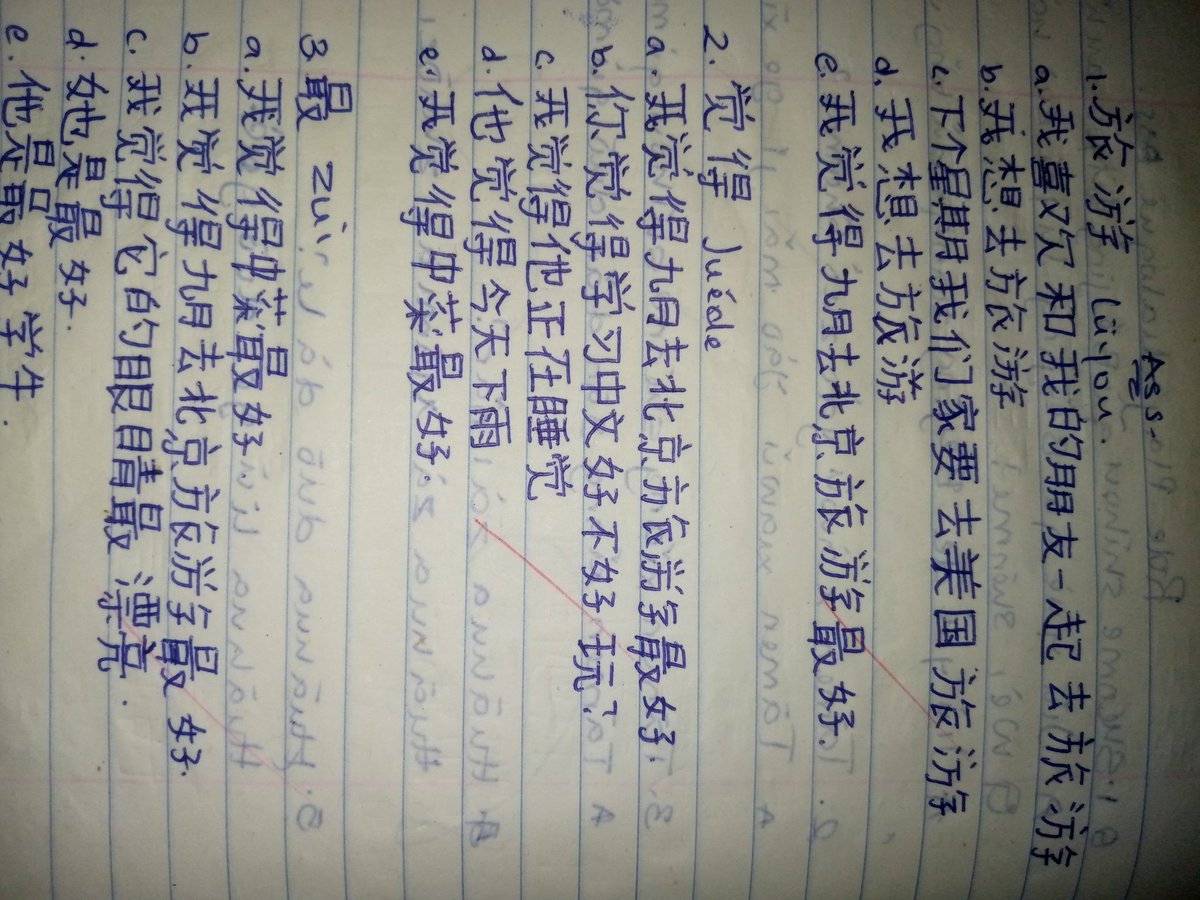 Ass-
1. 旅游 Lǚyóu.
a. 我喜欢和我的朋友一起去旅游
b. 我想去旅游
c. 下个星期我们家要去美国旅游
d. 我想去旅游
e. 我觉得九月去北京旅游最好.
2. 觉得 Juéde
a. 我觉得九月去北京旅游最好.
b. 你觉得学习中文好不好玩?
c. 我觉得他正在睡觉
d. 他觉得今天下雨
e. 我觉得中菜最好.
3 最 zuì
a. 我觉得中菜最好
b. 我觉得九月去北京旅游最好.
c. 我觉得它的眼睛最漂亮.
d. 她是最好.
e. 他是最好学生.